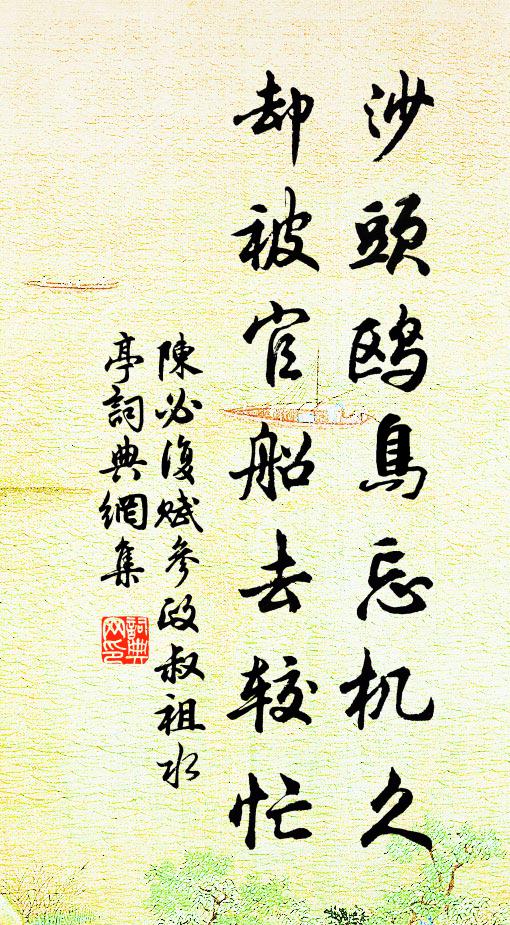 沙頭鸥鳥忘机久
却被官船去较忙
陳必復賦參政叔祖水
亭詞典網集
詞典网印